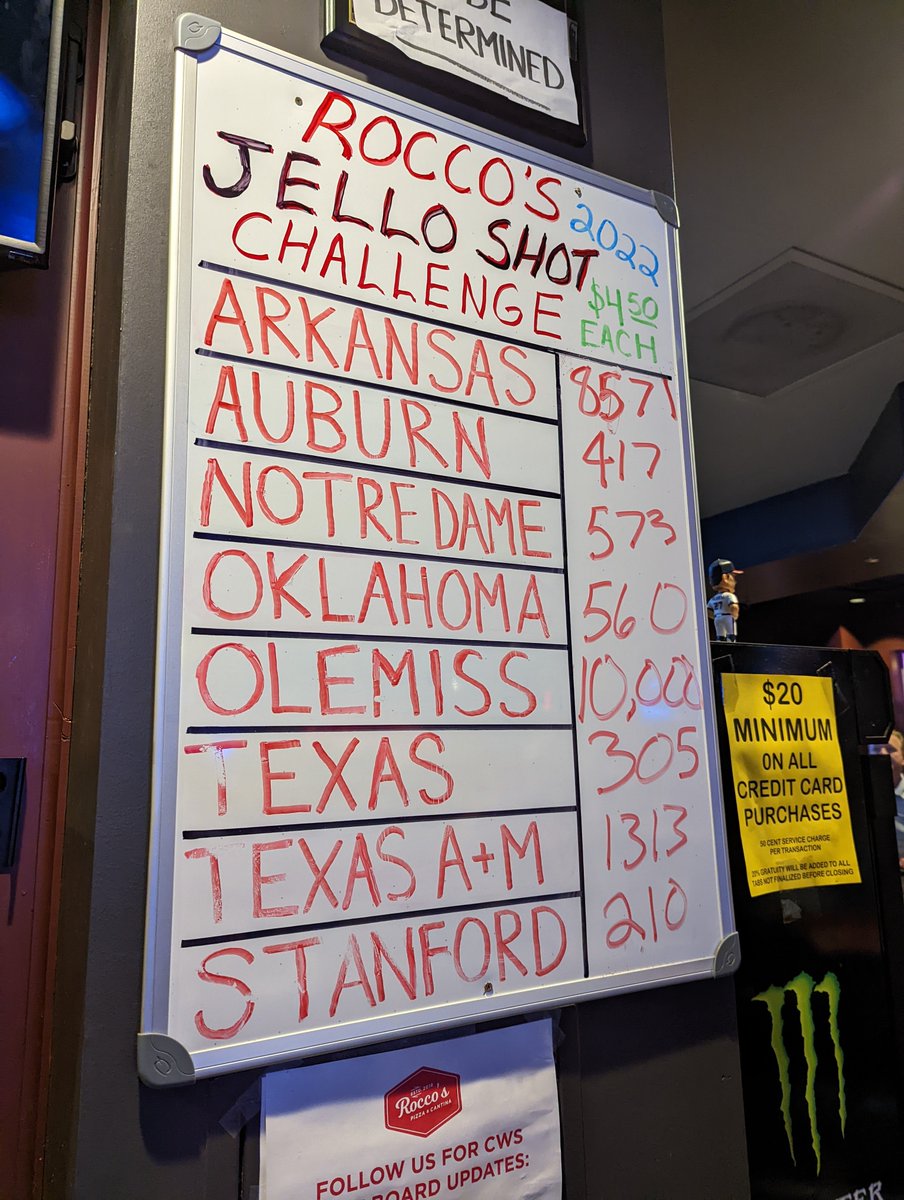 BE
DETERMINED
ROCCO'S
JELLO SHOT 2022
CHALLENGE $4.50 EACH
ARKANSAS 8571
AUBURN 417
NOTRE DAME 573
OKLAHOMA 560
OLEMISS 10,000
TEXAS 305
TEXAS A+M 1313
STANFORD 210
$20
MINIMUM
ON ALL
CREDIT CARD
PURCHASES
50 CENT SERVICE CHARGE
PER TRANSACTION
20% GRATUITY WILL BE ADDED TO ALL
TABS NOT FINALIZED BEFORE CLOSING
27
Rocco's
PIZZA & CANTINA
FOLLOW US FOR CWS
BOARD UPDATES: